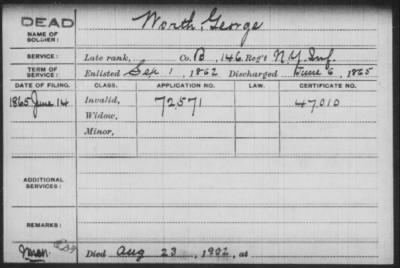 DEAD
NAME OF SOLDIER: Worth, George
SERVICE: Late rank, Co. B, 146 Reg't N.Y. Inf.
TERM OF SERVICE: Enlisted Sep 1, 1862 Discharged June 6, 1865
DATE OF FILING. CLASS. APPLICATION NO. LAW. CERTIFICATE NO.
1865 June 14 Invalid, 72571 47.010
Widow,
Minor,
ADDITIONAL SERVICES:
REMARKS:
Died Aug 23, 1902, at